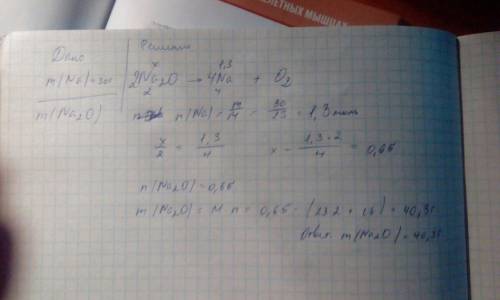 ЛЕТНЫХ МЫШЦАХ
Дано
Решение
m(Na)=30г
m(Na2O)
x 1,3
2Na2O → 4Na + O2
2 4
n(Na) = m/M = 30/23 = 1,3 моль
x/2 = 1,3/4 x = 1,3·2/4 = 0,65
n(Na2O) = 0,65
m(Na2O) = M n = 0,65 · (23·2 + 16) = 40,3г
Ответ: m(Na2O) = 40,3г